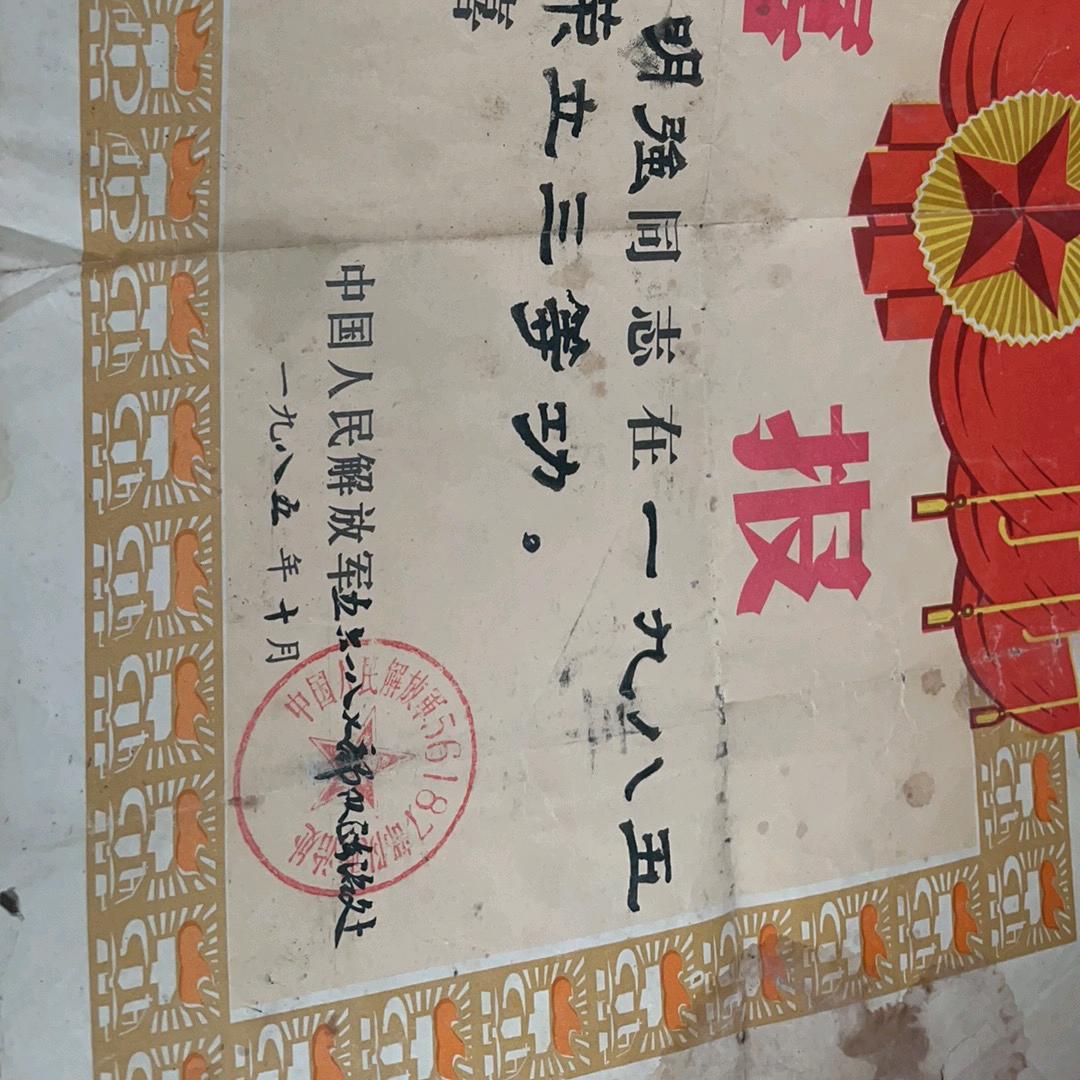 喜报
明強同志在一九八五
荣立三等功。
中国人民解放军五六一八七部队政治处
一九八五年十月
中国人民解放军56187部队政治处